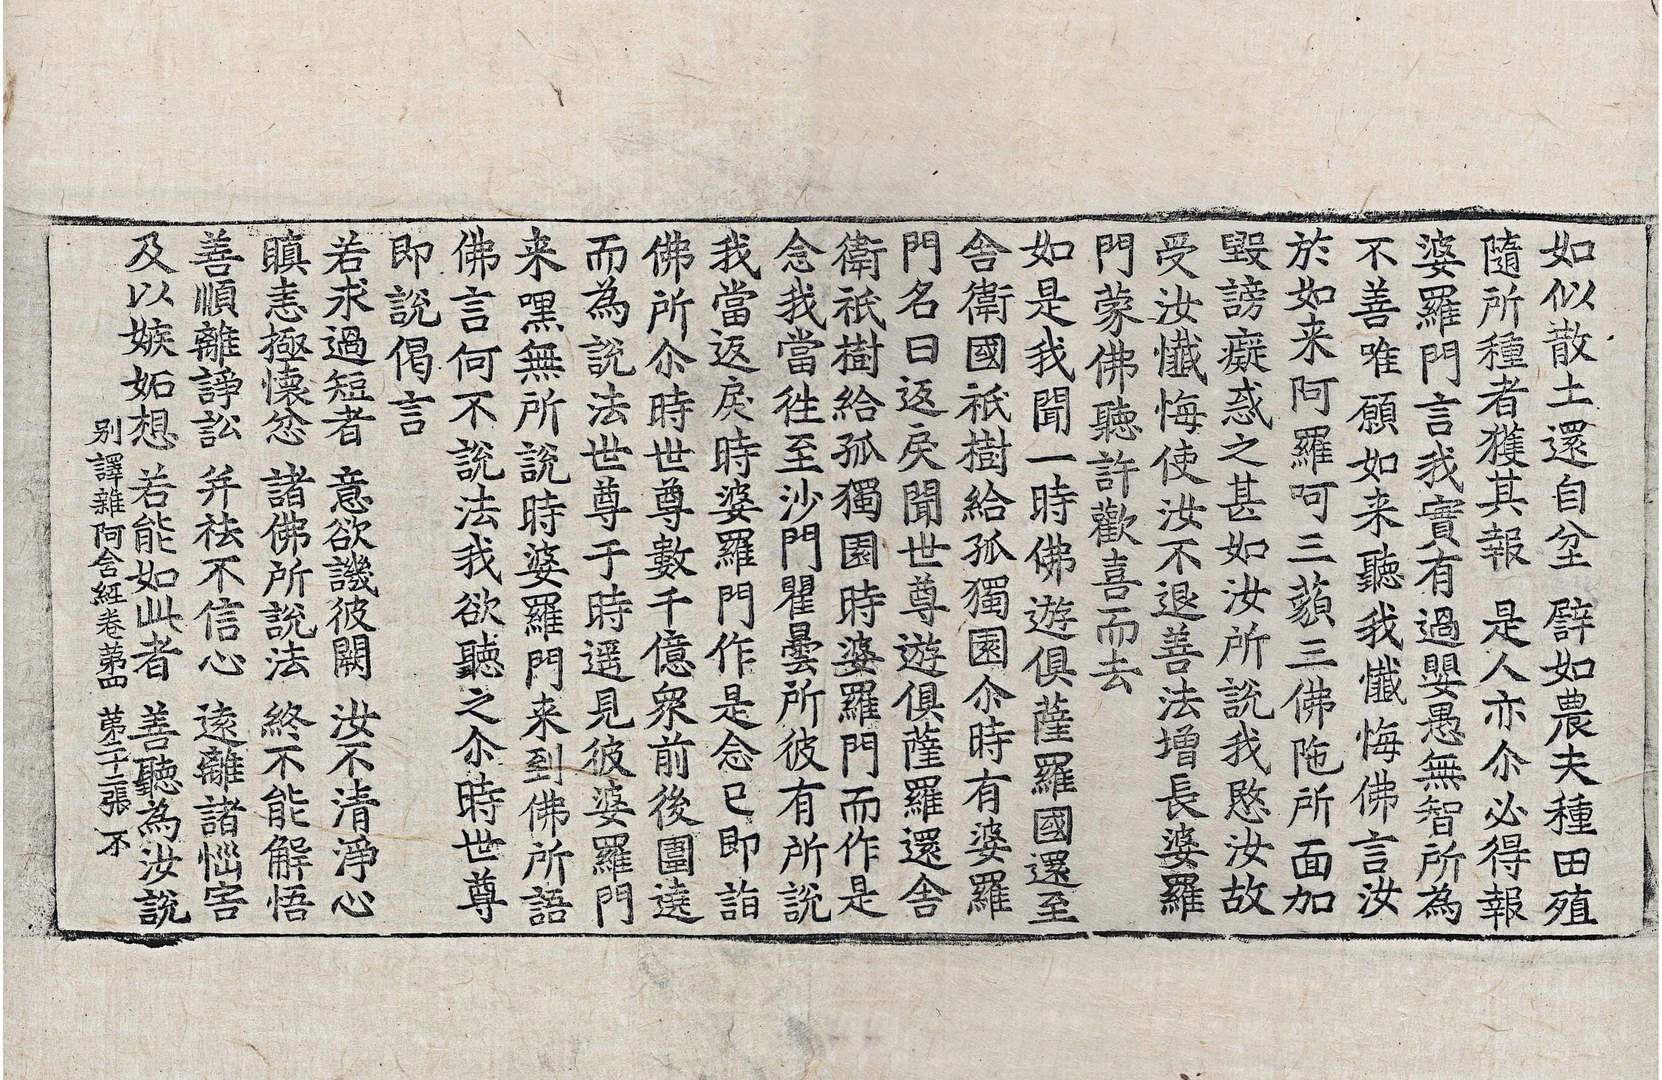 如似散土還自坌 譬如農夫種田殖
隨所種者獲其報 是人亦尒必得報
婆羅門言我實有過嬰愚無智所為
不善唯願如来聽我懺悔佛言汝
於如来阿羅呵三藐三佛陁所面加
毀謗癡惑之甚如汝所說我愍汝故
受汝懺悔使汝不退善法增長婆羅
門蒙佛聽許歡喜而去
如是我聞一時佛遊俱薩羅國還至
舎衛國祇樹給孤獨園尒時有婆羅
門名曰返戾聞世尊遊俱薩羅還舎
衛祇樹給孤獨園時婆羅門而作是
念我當徃至沙門瞿曇所彼有所說
我當返戾時婆羅門作是念已即詣
佛所尒時世尊數千億衆前後圍遶
而為說法世尊于時遥見彼婆羅門
来嘿無所說時婆羅門来到佛所語
佛言何不說法我欲聽之尒時世尊
即說偈言
若求過短者 意欲譏彼闕 汝不清淨心
瞋恚極懷忿 諸佛所說法 終不能解悟
善順離諍訟 并祛不信心 遠離諸惱害
及以嫉妬想 若能如此者 善聽為汝說
別譯雜阿含経卷苐四 苐二十二張 不